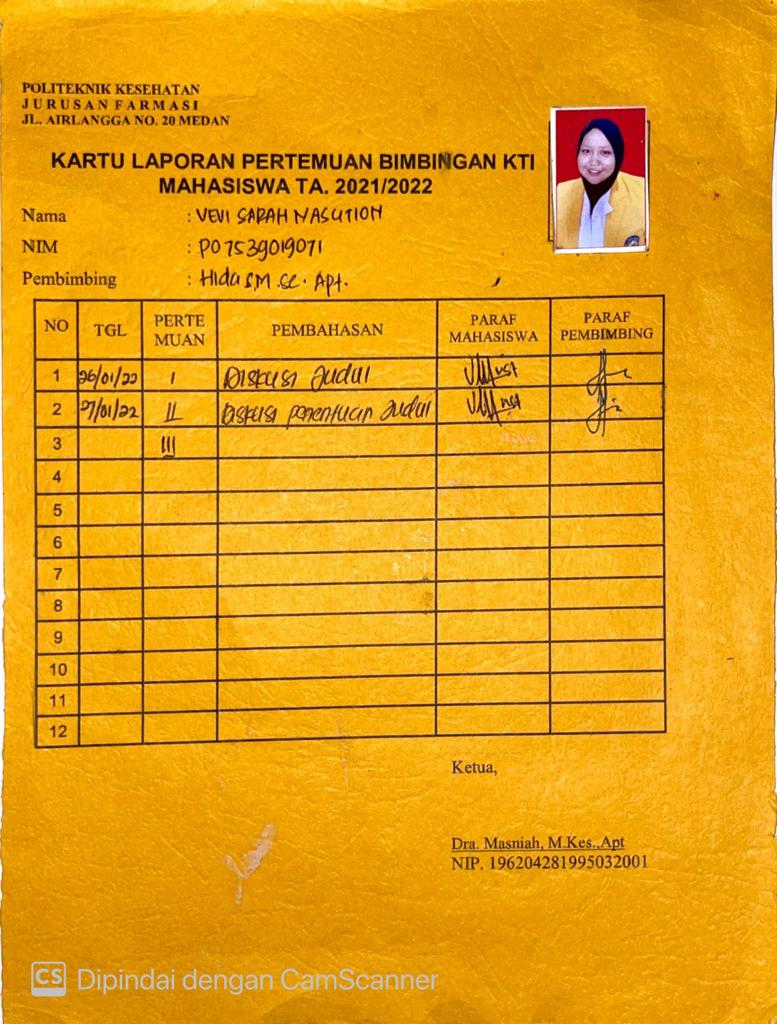 POLITEKNIK KESEHATAN
JURUSAN FARMASI
JL. AIRLANGGA NO. 20 MEDAN
KARTU LAPORAN PERTEMUAN BIMBINGAN KTI
MAHASISWA TA. 2021/2022
Nama : VEVI SARAH NASUTION
NIM : P07539019071
Pembimbing : Hida S,M.Sc. Apt.
NO TGL PERTE MUAN PEMBAHASAN PARAF MAHASISWA PARAF PEMBIMBING
1 26/01/22 I Diskusi Judul
2 27/01/22 II Diskusi Penentuan Judul
3 III
4
5
6
7
8
9
10
11
12
Ketua,
Dra. Masniah, M.Kes.,Apt
NIP. 196204281995032001
CS Dipindai dengan CamScanner